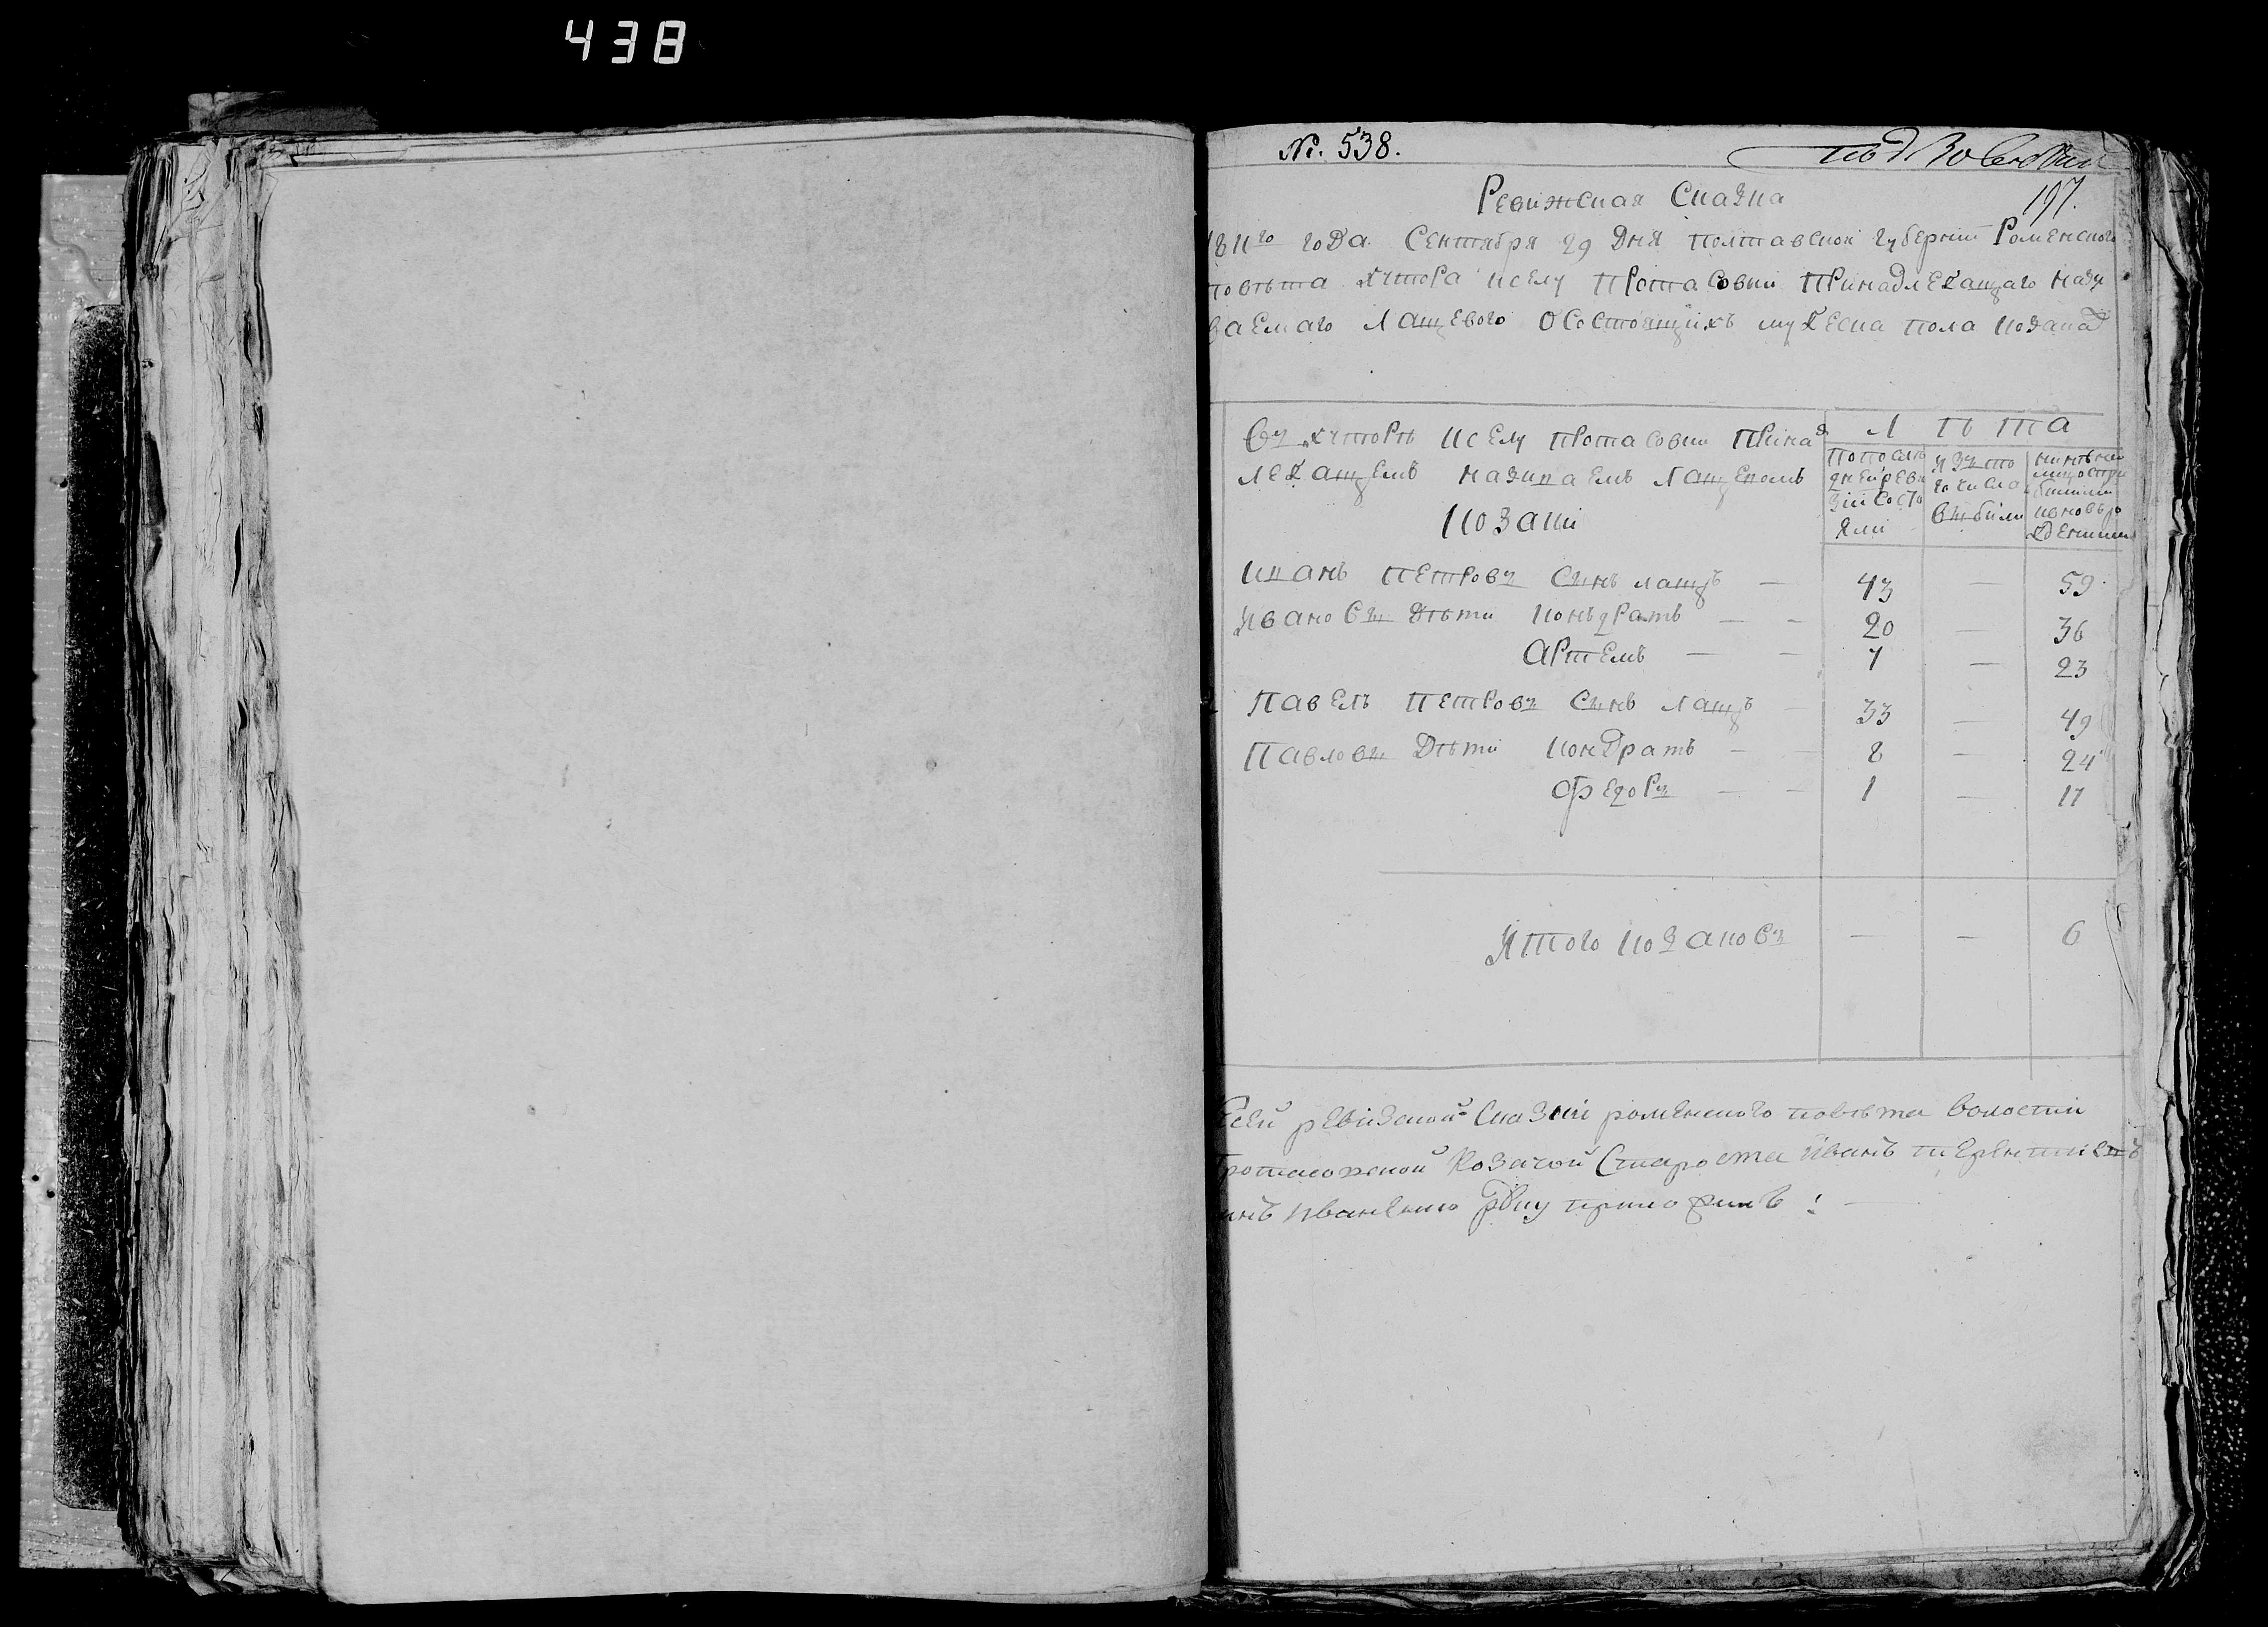 438
№. 538.
197.
Ревижская Сказка
1811го года Сентября 29 дня полтавской губернїи Роменского
повѣта хутора к селу протасовки принадлежащаго назы
ваемаго Лащевого о состоящихъ мужеска пола козакахъ
Въ хуторѣ к селу протасовки принад
лежащемъ називаемъ Лащевомъ
козаки
Л ѣ т а
По послѣ
дней реви
зіи состо
яли
изъ то
го числа
выбили
Иванъ Петровъ сынъ лащъ — 43 — 59.
Ивановы дѣти Конъдратъ — — 20 — 36
Артемъ — — 7 — 23
Павелъ Петровъ сынъ лащъ — 33 — 49
Павловы дѣти Кондратъ — — 8 — 24
Федоръ — — 1 — 17
Итого козаковъ — — 6
Ксей ревизской сказки роменского повѣта волости
Протасовской козачой Староста Иванъ терентиевъ
инъ Иваненко руку приложилъ :